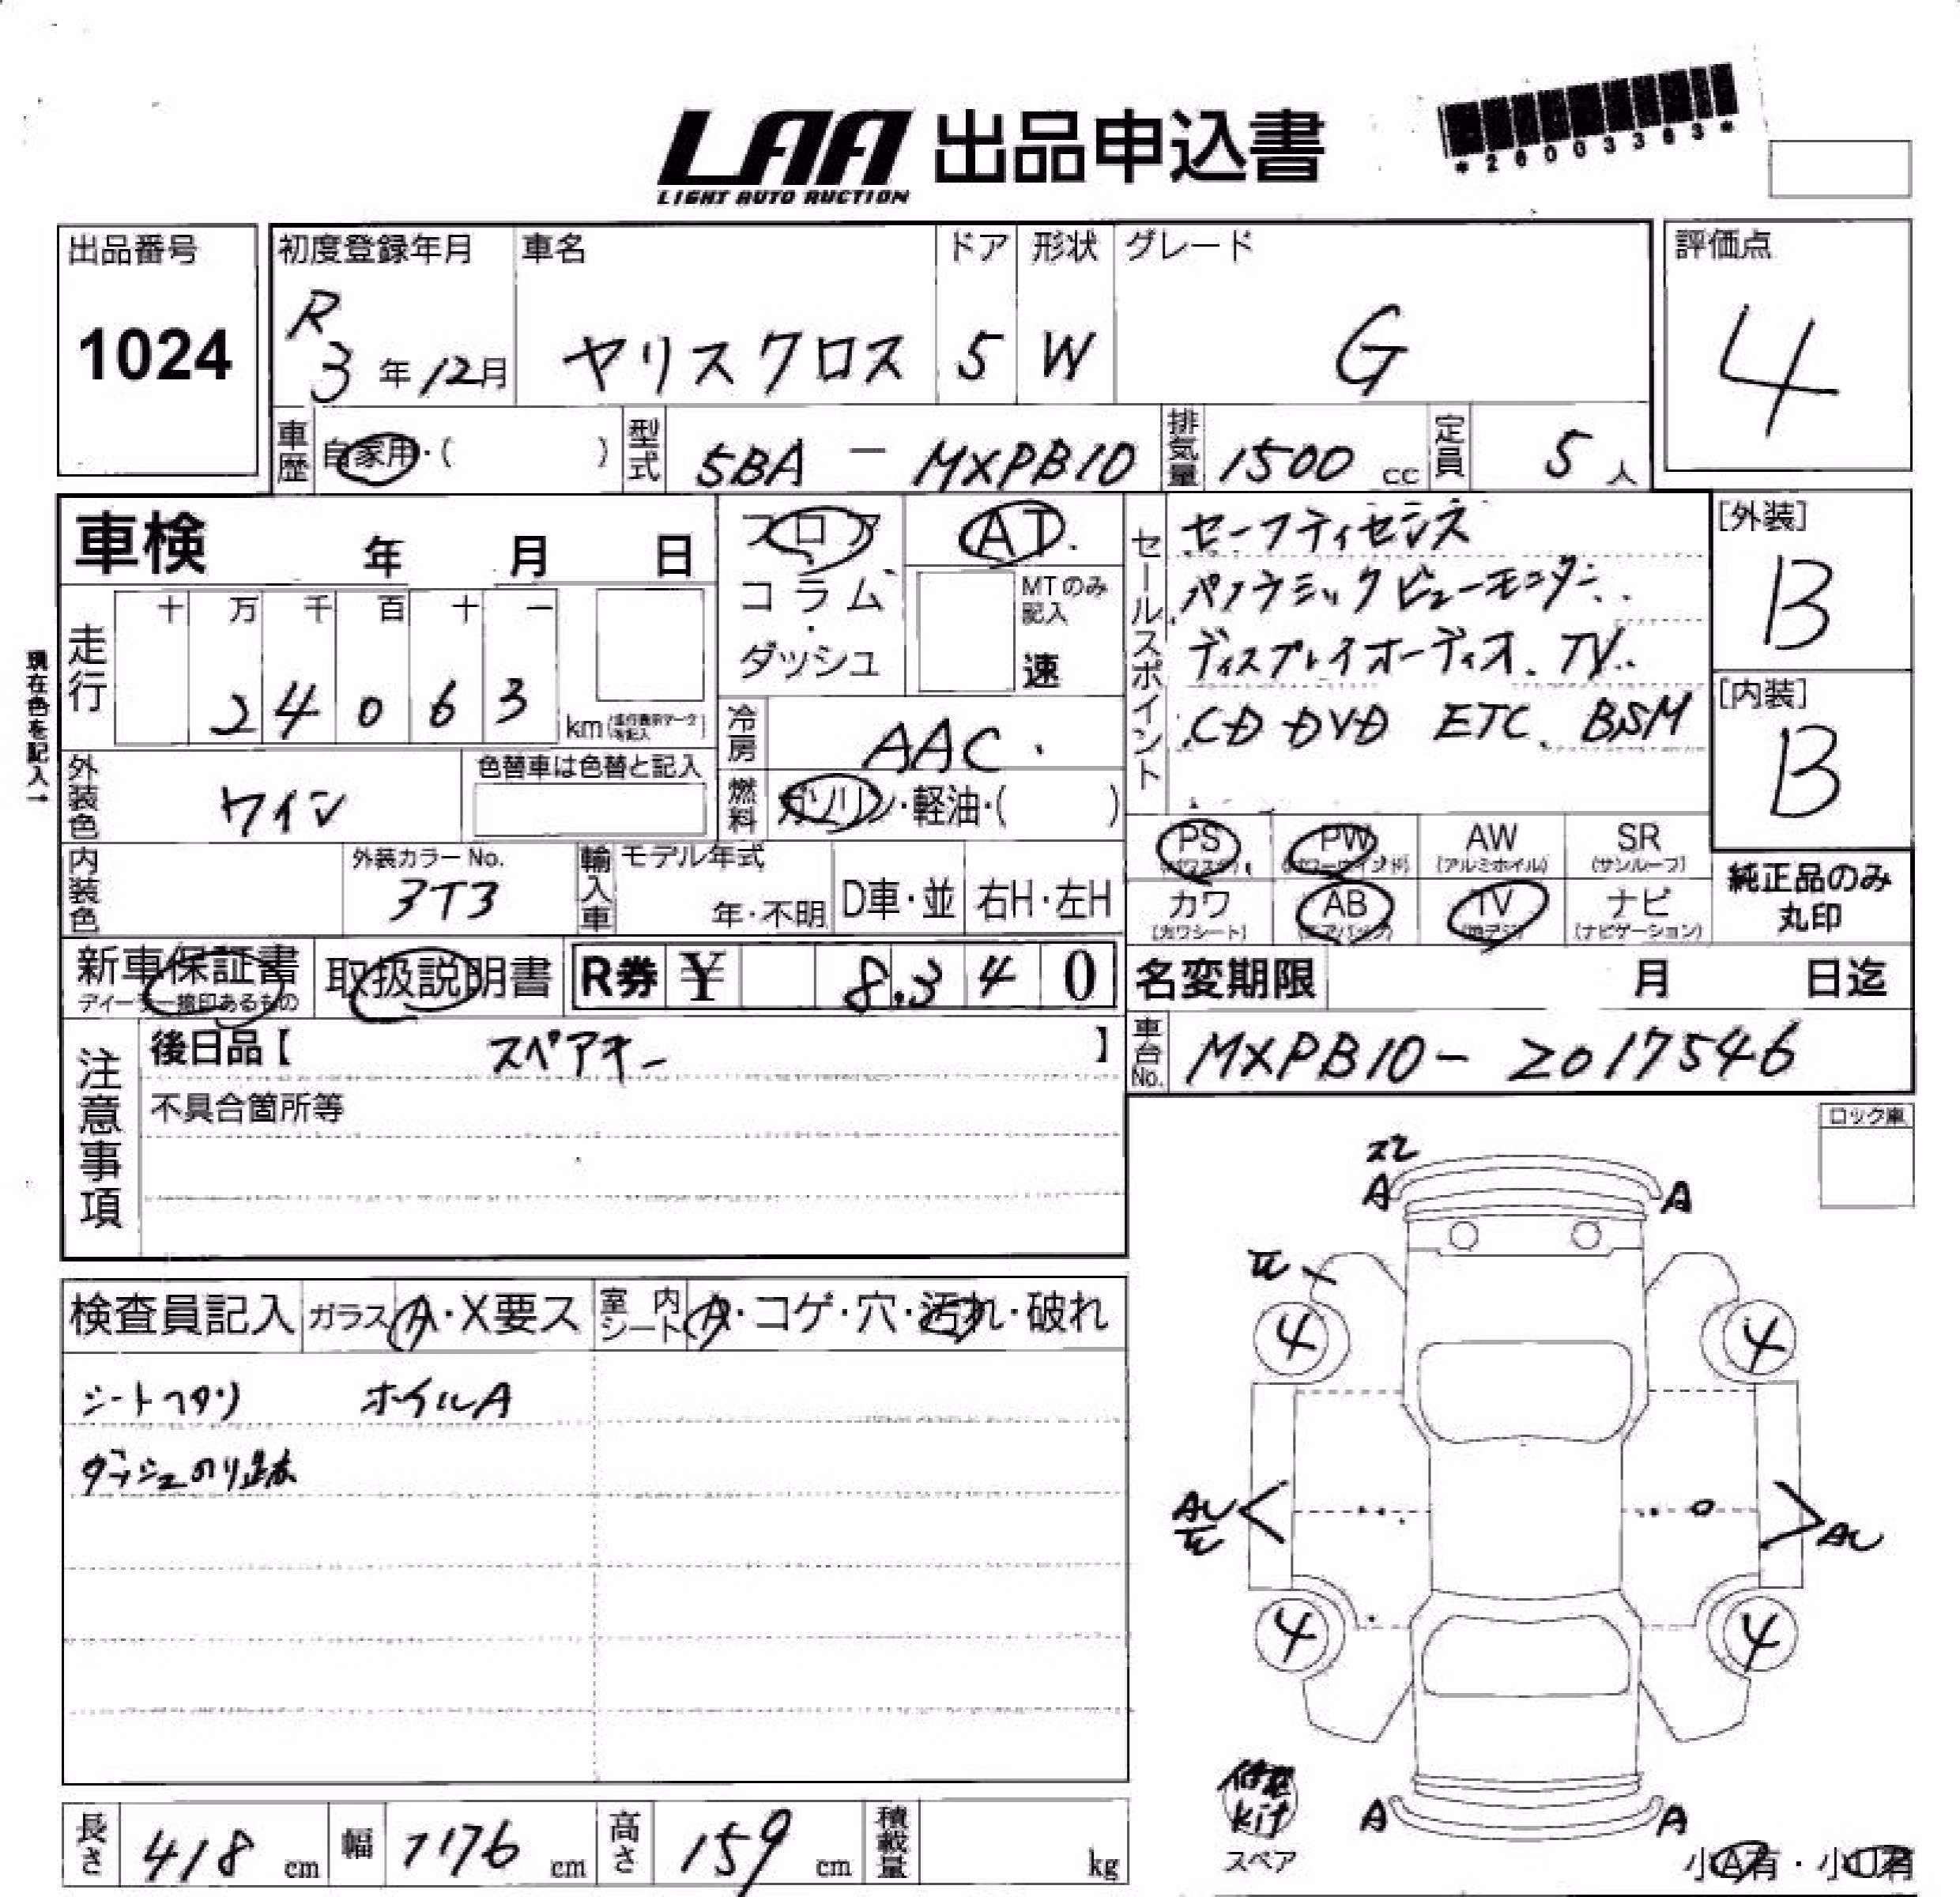 LAA 出品申込書
LIGHT AUTO AUCTION
*26003363*
出品番号
1024
初度登録年月
R
3 年 12 月
車名
ヤリスクロス
ドア
5
形状
W
グレード
G
評価点
4
車歴
自家用・( )
型式
5BA - MXPB10
排気量
1500 cc
定員
5 人
車検 年 月 日
フロア
コラム
ダッシュ
AT
MTのみ記入
速
セールスポイント
セーフティセンス
パノラミックビューモニター
ディスプレイオーディオ. TV..
CD DVD ETC BSM
[外装]
B
[内装]
B
現在色を記入→
走行
十 万 千 百 十 一
2 4 0 6 3
km
冷房
AAC
燃料
ガソリン・軽油・( )
外装色
ワイン
色替車は色替と記入
内装色
外装カラーNo.
3T3
輸入車
モデル年式
年・不明
D車・並
右H・左H
PS
(パワステ)
PW
(パワーウインド)
AW
(アルミホイル)
SR
(サンルーフ)
カワ
(カワシート)
AB
(エアバッグ)
TV
(地デジ)
ナビ
(ナビゲーション)
純正品のみ
丸印
新車保証書
ディーラー捺印あるもの
取扱説明書
R券 ¥ 8,340
名変期限 月 日迄
車台No.
MXPB10-2017546
注意事項
後日品【 スペアキー 】
不具合箇所等
ロック車
検査員記入
ガラス A・X要ス
室内シート A・コゲ・穴・汚れ・破れ
シートヘタリ ホイルA
ダッシュのり跡
A
A
4
4
AU
AU
4
4
A
A
修理
kit
スペア
小A有・小U有
長さ
418 cm
幅
176 cm
高さ
159 cm
積載量
kg